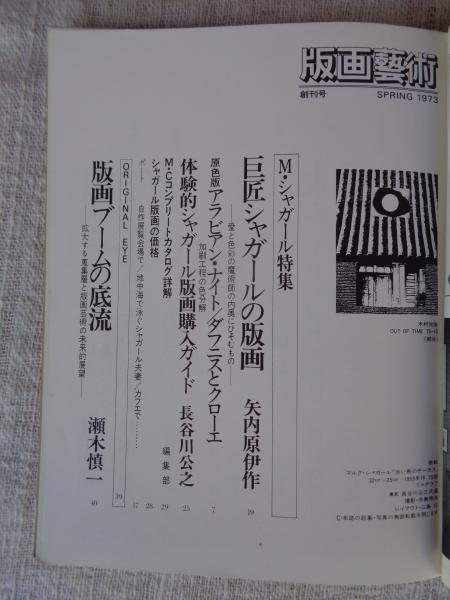 版画藝術
創刊号
SPRING 1973
木村光佑
OUT OF TIME
表紙
M・シャガール特集
巨匠シャガールの版画
矢内原伊作
19
愛と色彩の魔術師の内奥にひそむもの
原色版 アラビアン・ナイト/ダフニスとクローエ
7
加刷工程の色分解
体験的シャガール版画購入ガイド
長谷川公之
25
M・Cコンプリートカタログ詳解
編集部
29
シャガール版画の価格
28
自作展覧会場で/地中海で泳ぐシャガール夫妻/カフエで
17
ORIGINAL EYE
39
版画ブームの底流
瀬木慎一
40
拡大する蒐集層と版画芸術の未来的展望
マルク・シャガール
32cm×25cm
リトグラフ